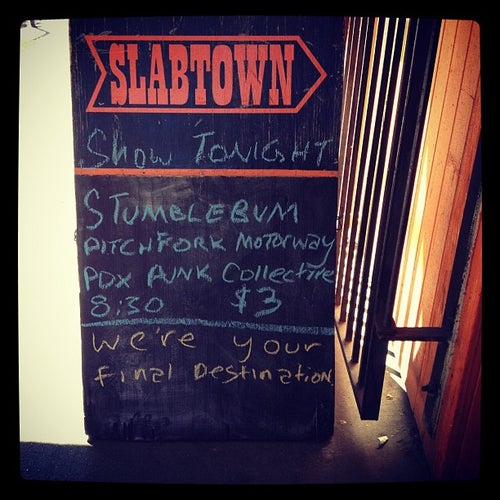 SLABTOWN
SHOW TONIGHT
STUMBLEBUM
PITCHFORK MOTORWAY
PDX PUNK Collective
8:30 $3
We're your
Final Destination